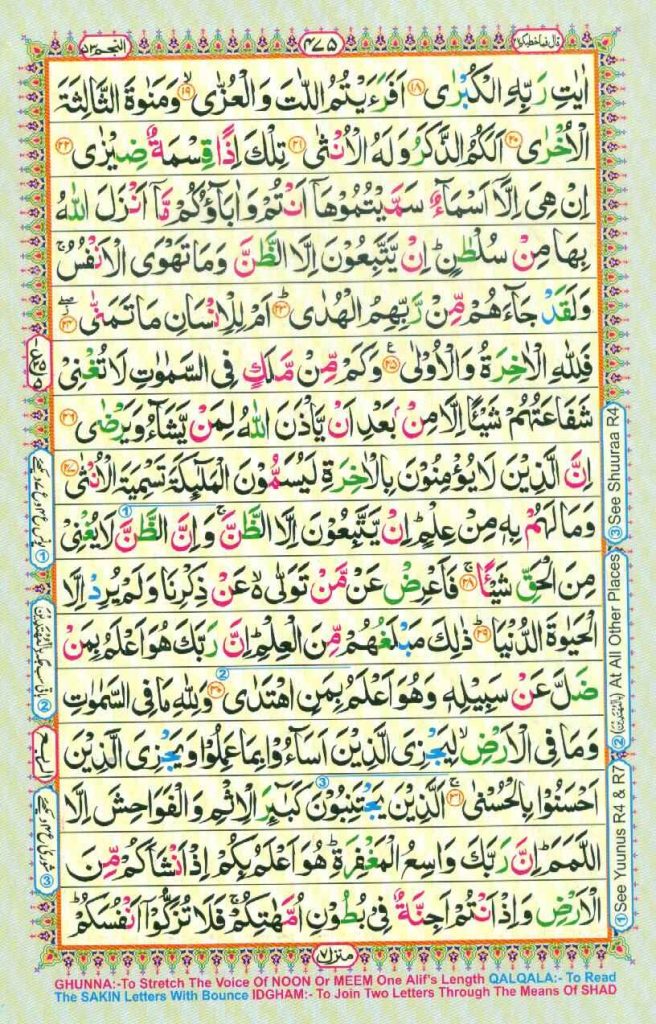 النجم ٥٣
٤٧٥
قال فما خطبكم ٢٧
اٰيٰتِ رَبِّهِ الْكُبْرٰى ﴿۱۸﴾ اَفَرَءَيْتُمُ اللّٰتَ وَالْعُزّٰى ﴿۱۹﴾ وَمَنٰوةَ الثَّالِثَةَ
الْاُخْرٰى ﴿۲۰﴾ اَلَكُمُ الذَّكَرُ وَلَهُ الْاُنْثٰى ﴿۲۱﴾ تِلْكَ اِذًا قِسْمَةٌ ضِيْزٰى ﴿۲۲﴾
اِنْ هِىَ اِلَّاۤ اَسْمَآءٌ سَمَّيْتُمُوْهَاۤ اَنْتُمْ وَاٰبَآؤُكُمْ مَّاۤ اَنْزَلَ اللّٰهُ
بِهَا مِنْ سُلْطٰنٍ ؕ اِنْ يَّتَّبِعُوْنَ اِلَّا الظَّنَّ وَمَا تَهْوَى الْاَنْفُسُ ۚ
وَلَقَدْ جَآءَهُمْ مِّنْ رَّبِّهِمُ الْهُدٰى ؕ ﴿۲۳﴾ اَمْ لِلْاِنْسَانِ مَا تَمَنّٰى ﴿۲۴﴾
فَلِلّٰهِ الْاٰخِرَةُ وَالْاُوْلٰى ﴿۲۵﴾ ع وَكَمْ مِّنْ مَّلَكٍ فِى السَّمٰوٰتِ لَا تُغْنِىْ
شَفَاعَتُهُمْ شَيْئًا اِلَّا مِنْۢ بَعْدِ اَنْ يَّاْذَنَ اللّٰهُ لِمَنْ يَّشَآءُ وَيَرْضٰى ﴿۲۶﴾
اِنَّ الَّذِيْنَ لَا يُؤْمِنُوْنَ بِالْاٰخِرَةِ لَيُسَمُّوْنَ الْمَلٰٓئِكَةَ تَسْمِيَةَ الْاُنْثٰى ﴿۲۷﴾
وَمَا لَهُمْ بِهٖ مِنْ عِلْمٍ ؕ اِنْ يَّتَّبِعُوْنَ اِلَّا الظَّنَّ ۚ وَاِنَّ الظَّنَّ لَا يُغْنِىْ
مِنَ الْحَقِّ شَيْئًا ۚ ﴿۲۸﴾ فَاَعْرِضْ عَنْ مَّنْ تَوَلّٰى ۙ عَنْ ذِكْرِنَا وَلَمْ يُرِدْ اِلَّا
الْحَيٰوةَ الدُّنْيَا ؕ ﴿۲۹﴾ ذٰلِكَ مَبْلَغُهُمْ مِّنَ الْعِلْمِ ؕ اِنَّ رَبَّكَ هُوَ اَعْلَمُ بِمَنْ
ضَلَّ عَنْ سَبِيْلِهٖ وَهُوَ اَعْلَمُ بِمَنِ اهْتَدٰى ﴿۳۰﴾ وَلِلّٰهِ مَا فِى السَّمٰوٰتِ
وَمَا فِى الْاَرْضِ ۙ لِيَجْزِىَ الَّذِيْنَ اَسَآءُوْا بِمَا عَمِلُوْا وَيَجْزِىَ الَّذِيْنَ
اَحْسَنُوْا بِالْحُسْنٰى ۚ ﴿۳۱﴾ اَلَّذِيْنَ يَجْتَنِبُوْنَ كَبٰٓئِرَ الْاِثْمِ وَالْفَوَاحِشَ اِلَّا
اللَّمَمَ ؕ اِنَّ رَبَّكَ وَاسِعُ الْمَغْفِرَةِ ؕ هُوَ اَعْلَمُ بِكُمْ اِذْ اَنْشَاَكُمْ مِّنَ
الْاَرْضِ وَاِذْ اَنْتُمْ اَجِنَّةٌ فِىْ بُطُوْنِ اُمَّهٰتِكُمْ ۚ فَلَا تُزَكُّوْۤا اَنْفُسَكُمْ ؕ
منزل ٧
① See Yuunus R4 & R7
② (بِالْمُهْتَدِيْنَ) At All Other Places
③ See Shuuraa R4
GHUNNA:-To Stretch The Voice Of NOON Or MEEM One Alif's Length QALQALA:- To Read
The SAKIN Letters With Bounce IDGHAM:- To Join Two Letters Through The Means Of SHAD